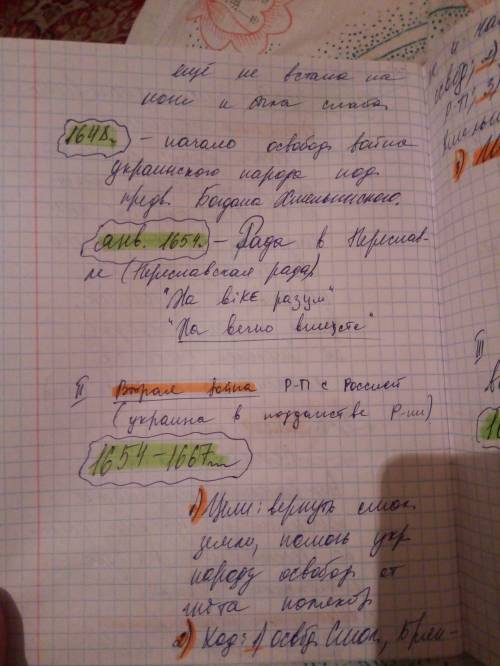 ещё не встала на
ноги и была слаба
1648г. – начало освобод. война
украинского народа под
предв. Богдана Хмельницкого.
янв. 1654г. – Рада в Переслав-
ле (Переславская рада)
"На вiкЕ разум"
"На вечно вместе"
II Вторая война Р-П с Россией
(украина в подданстве Р-пи)
1654-1667гг
1) Цели: вернуть смол.
земли, помочь укр
народу освобод от
гнёта поляков
2) Ход: 1) освоб. Смол,